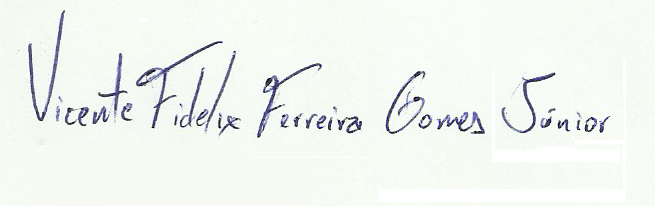 Vicente Fidelix Ferreira Gomes Júnior